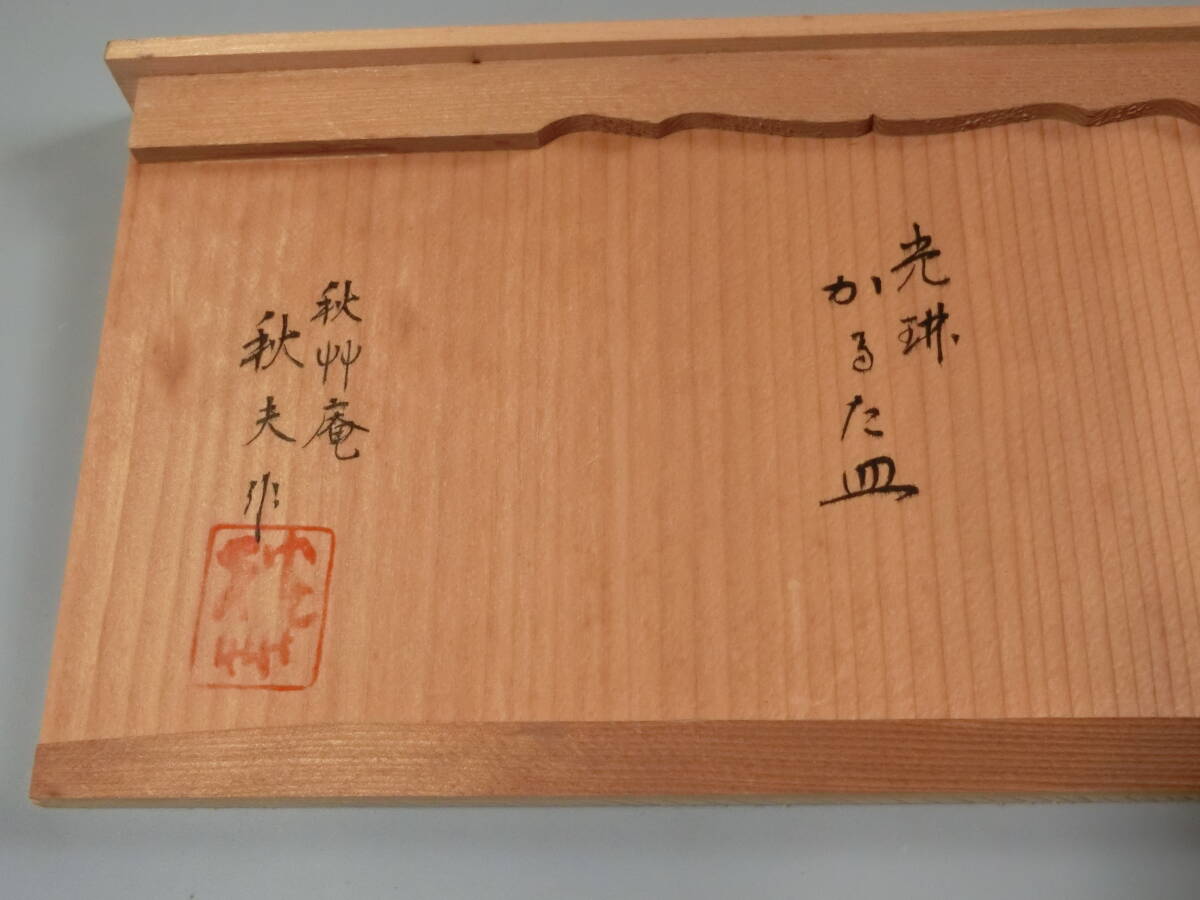 光琳
かるた皿
秋艸庵
秋夫作